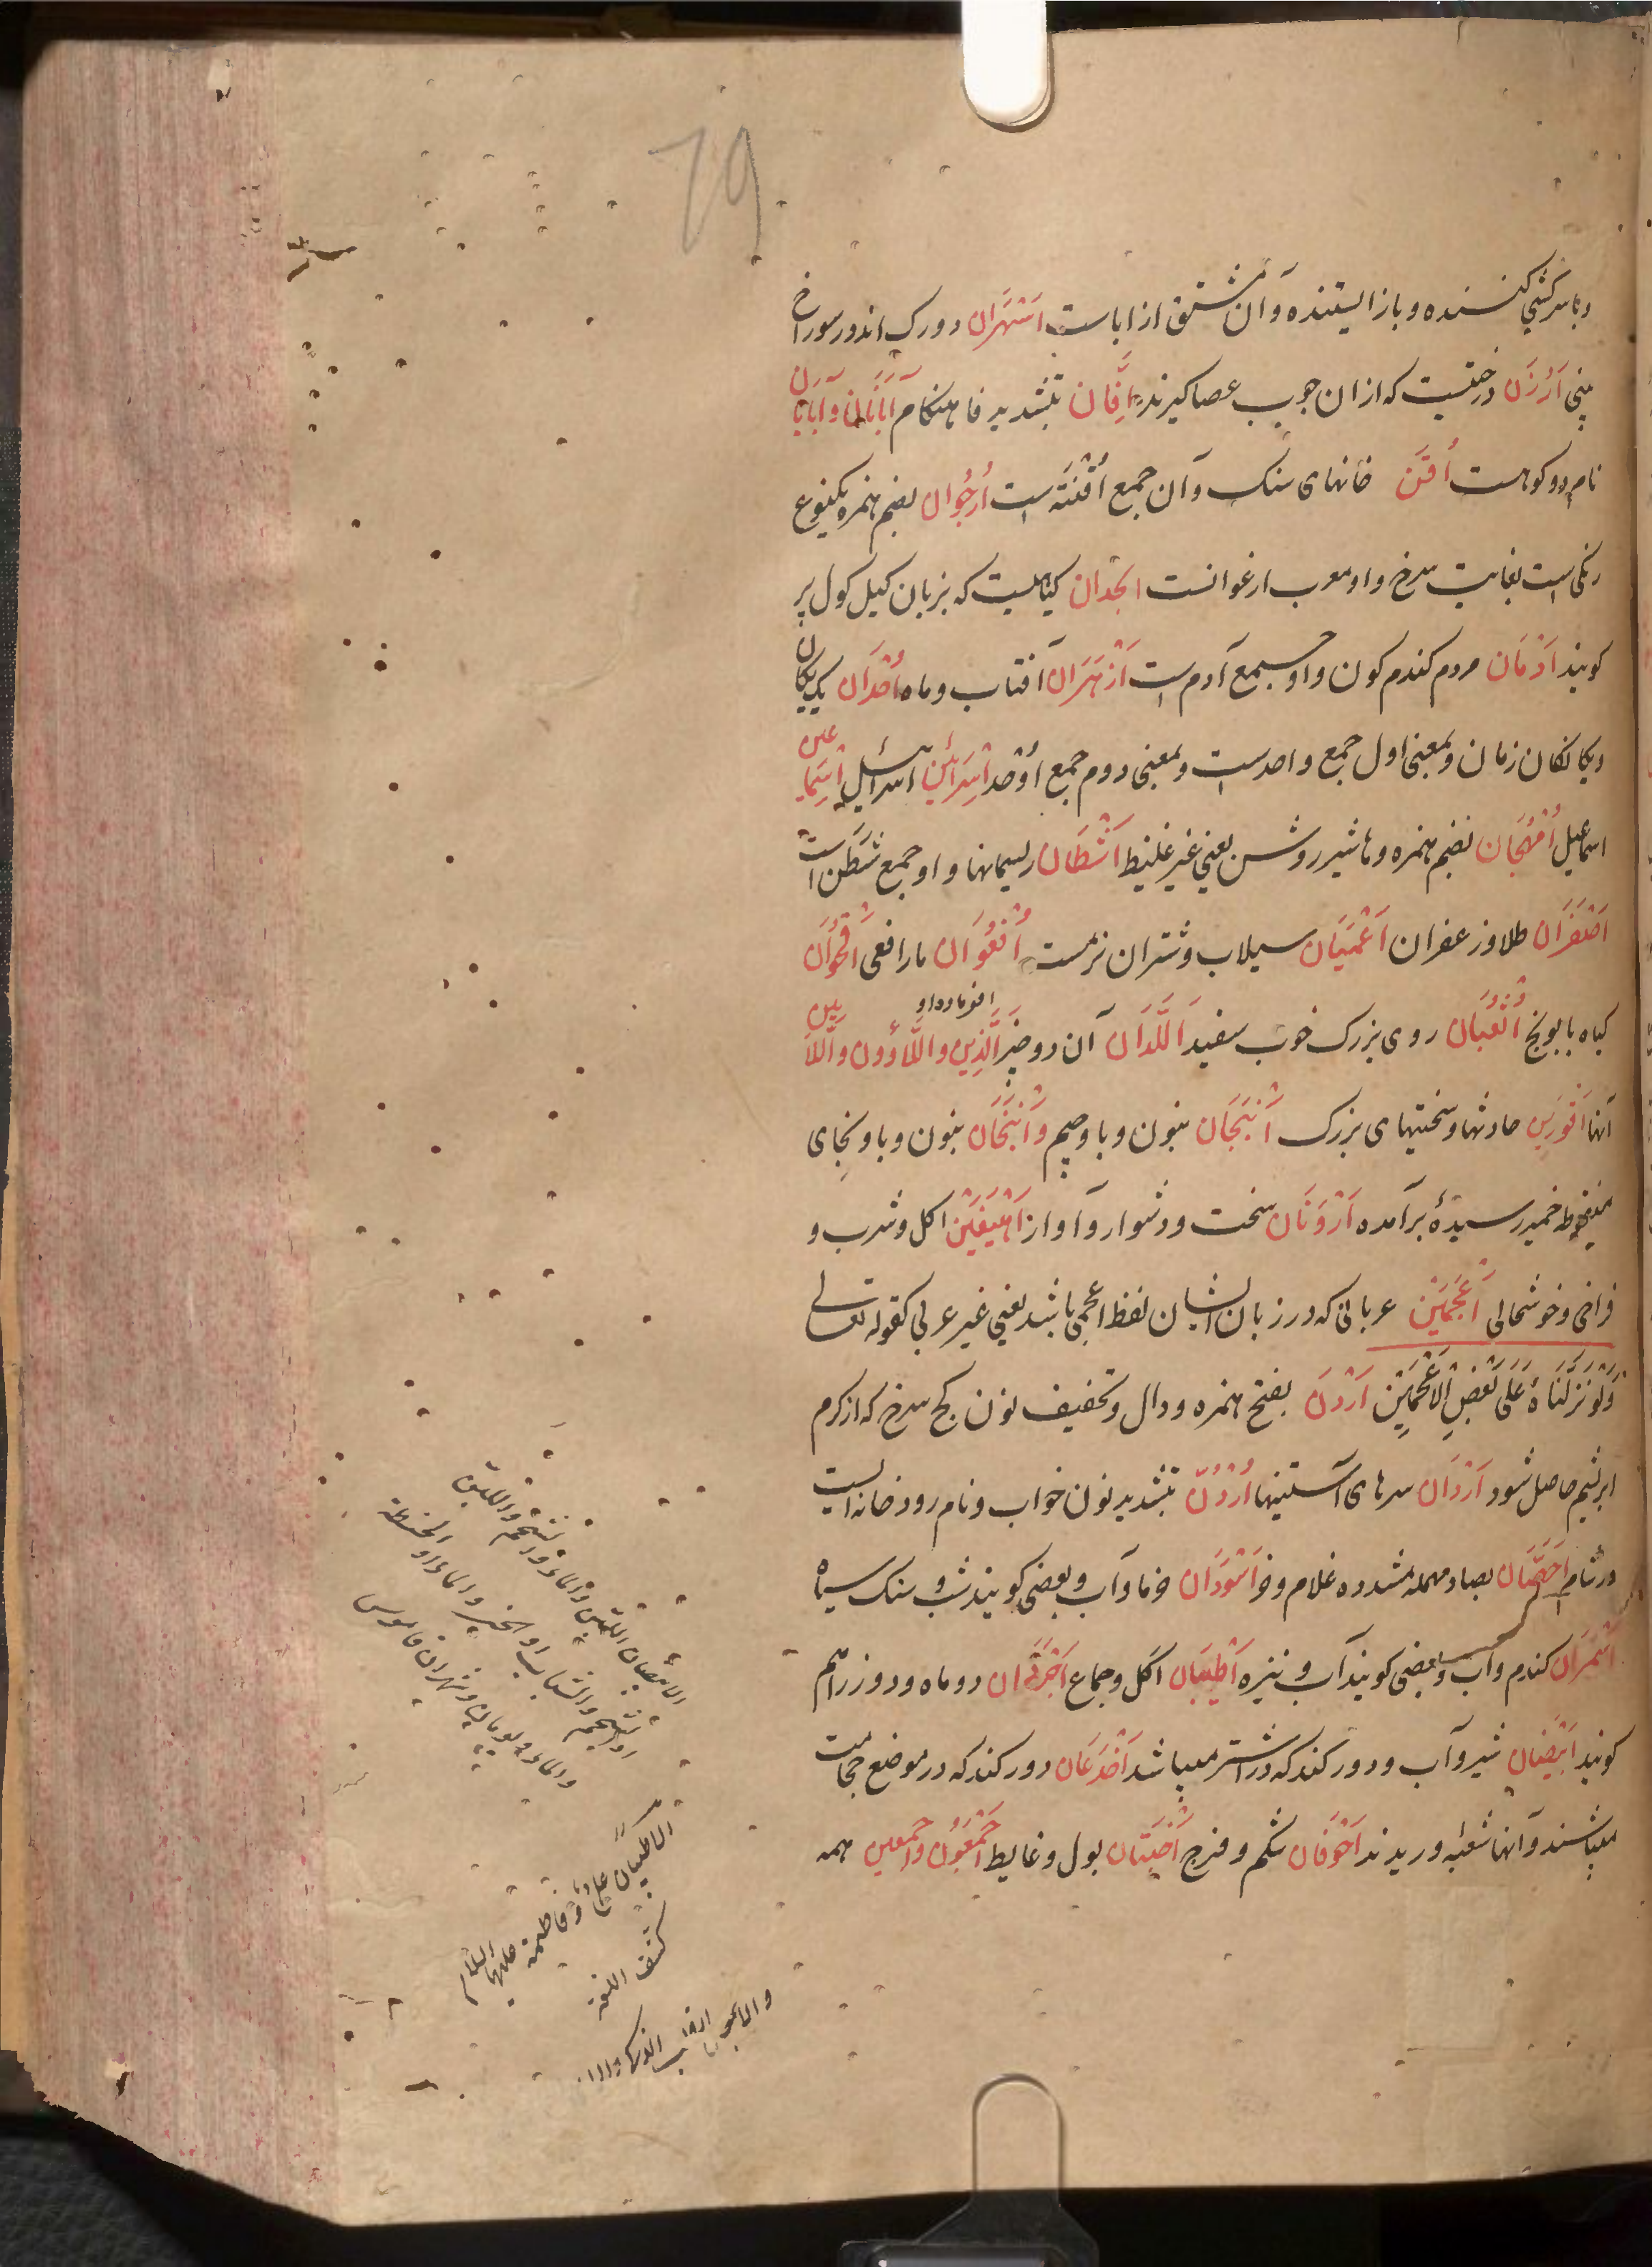 79
و با سرکشی کننده و باز ایستنده و آن مشتق از اباست اَسْهَران دو رک اندر سوراخ
بینی اَرْزَن درختیست که از ان چوب عصا گیرند اِفّان بتشدید فا هنگام اَبَانان و اَبَانَان
نام دو کوهست اُقَن خانهای سنک و آن جمع اُقْنَه است اُرجُوان بضم همزه یکنوع
رنکی است بغایت سرخ و او معرب ارغوانست انجدان کیاهیست که بزبان کیل کول پر
کویند اُدْمَان مردم کندم کون و او جمع آدم است اَزْهَرَان آفتاب و ماه اُحْدَان یک یکان
و یکانکان زمان و بمعنی اول جمع واحد ست و بمعنی دوم جمع اَوْحد اِسْرَائین اسرائیل اِسْمَاعین
اسماعیل اُمْهُجَان بضم همزه و ها شیر روشن یعنی غیر غلیظ اَشْطَان ریسمانها و او جمع شَطَن است
اَصْفَرَان طلا و زعفران اَعْمَیَان سیلاب و شتران نرمست اُفْعُوَان مار افعی اُقْحُوَان
کیاه بابونج اُثْعُبَان روی بزرک خوب سفید اَللَّذَان آن دو چیز اَلَّذِین و اللَّاؤون و اَللَّائین
آنها اَقْوَرِین حادثها و سختیهای بزرک اَنْبَجَان بنون و با و جیم و اَنْبَخَان بنون و با و بخای
منقوطه خمیر رسیدۀ برآمده اَرْوَنَان سخت و دشوار و آواز اَهْیَغَیْن اکل و شرب و
فراخی و خوشحالی اَعْجَمَیْن عربانی که در زبان ایشان لفظ اعجمی باشد یعنی غیر عربی کقوله تعالی
وَلَوْ نَزَّلْنَاهُ عَلَی بَعْضِ الْاَعْجَمِین اَرْدَن بفتح همزه و دال و تخفیف نون کج سرخ که از کرم
ابریشم حاصل شود اَرْدَان سرهای آستینها اُرْدُنّ بتشدید نون خواب و نام رودخانه ایست
در شام اَصَمَّان بصاد مهمله مشدده غلام و خر اَسْوَدَان خرما و آب و بعضی کویند شب و سنک سیاه
اَسْمَرَان کندم و آب و بعضی کویند آب و نیزه اَطْیَبَان اکل و جماع اَجْرَدَان دو ماه و دو روز را هم
کویند اَبْیَضَان شیر و آب و دو رک کند که در شتر میباشد اَخْدَعَان دو رک کند که در موضع حجامت
میباشند و آنها شعبه وریدند اَجْوَفَان شکم و فرج اَخْبَثَان بول و غایط اَجْمَعُون و اَجْمعین همه
الأبیضان اللبن والماء او الشحم واللبن
او الشحم والشباب او الخبز والماء او الحنطة
والماء
قاموس
الاطیبان علی و فاطمه علیهما السلام
کشف اللغه